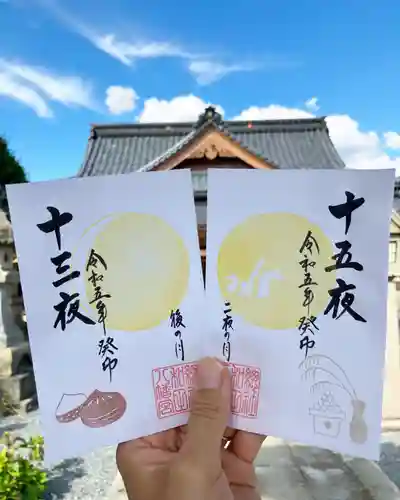 十五夜
令和五年癸卯
二夜の月
十三夜
令和五年癸卯
後の月